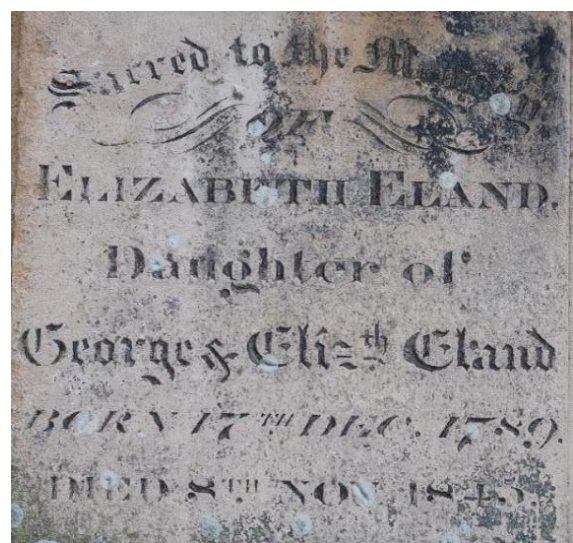 Sacred to the Memory
OF
ELIZABETH ELAND.
Daughter of
George & Eliz.th Eland
BORN 17TH DEC. 1789.
DIED 8TH NOV. 1845.